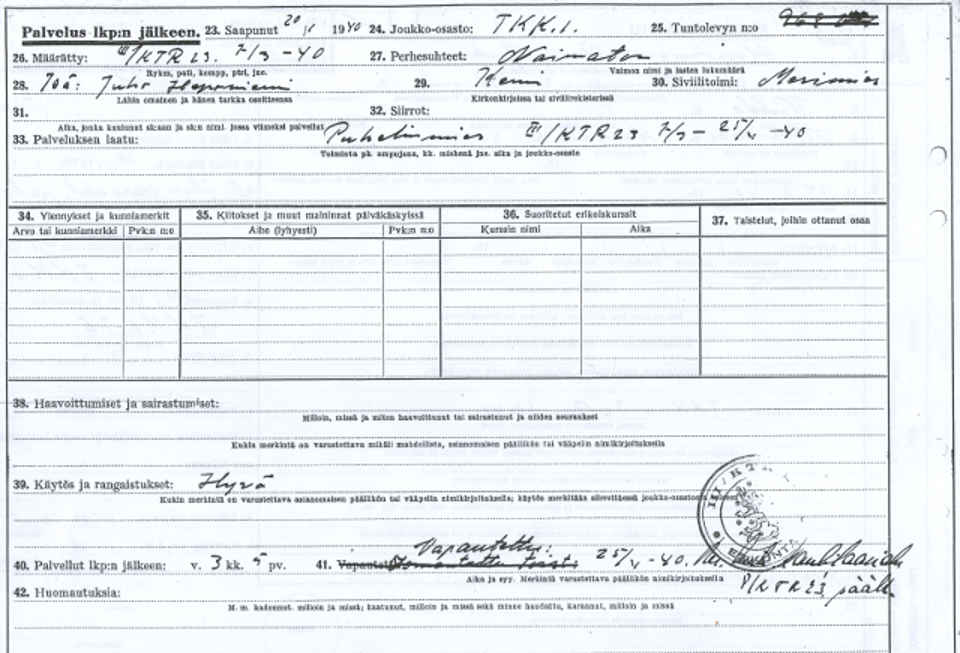 Palvelus lkp:n jälkeen. 23. Saapunut 20/1 1940 24. Joukko-osasto: TKK.1. 25. Tuntolevyn n:o
26. Määrätty: III/KTR 23. 7/3 -40 27. Perhesuhteet: Naimaton
Rykm, patl, kompp, ptri, jne. Vaimon nimi ja lasten lukumäärä
28. Isä: Juho 29. Kemi 30. Siviilitoimi: Merimies
Lähin omainen ja hänen tarkka osoitteensa Kirkonkirjoissa tai siviilirekisterissä
31. 32. Siirrot:
Aika, jonka kuulunut sk:aan ja sk:n nimi, jossa viimeksi palvellut
33. Palveluksen laatu: Puhelinmies III/KTR 23 7/3 - 25/4 -40
Toiminta pk. ampujana, kk. miehenä jne. aika ja joukko-osasto
34. Ylennykset ja kunniamerkit 35. Kiitokset ja muut maininnat päiväkäskyissä 36. Suoritetut erikoiskurssit 37. Taistelut, joihin ottanut osaa
Arvo tai kunniamerkki Pvk:n n:o Aihe (lyhyesti) Pvk:n n:o Kurssin nimi Aika
38. Haavoittumiset ja sairastumiset:
Milloin, missä ja miten haavoittunut tai sairastunut ja niiden seuraukset
Kukin merkintä on varustettava mikäli mahdollista, asianomaisen päällikön tai vääpelin nimikirjoituksella
39. Käytös ja rangaistukset: Hyvä
Kukin merkintä on varustettava asianomaisen päällikön tai vääpelin nimikirjoituksella; käytös merkitään siirrettäessä joukko-osastosta
III/KTR
Vapautettu:
40. Palvellut lkp:n jälkeen: v. 3 kk. 5 pv. 41. 25/4 -40.
Aika ja syy. Merkintä varustettava päällikön nimikirjoituksella
KTR 23 pääll.
42. Huomautuksia:
M. m. kadonnut, milloin ja missä; kaatunut, milloin ja missä sekä minne haudattu, karannut, milloin ja missä